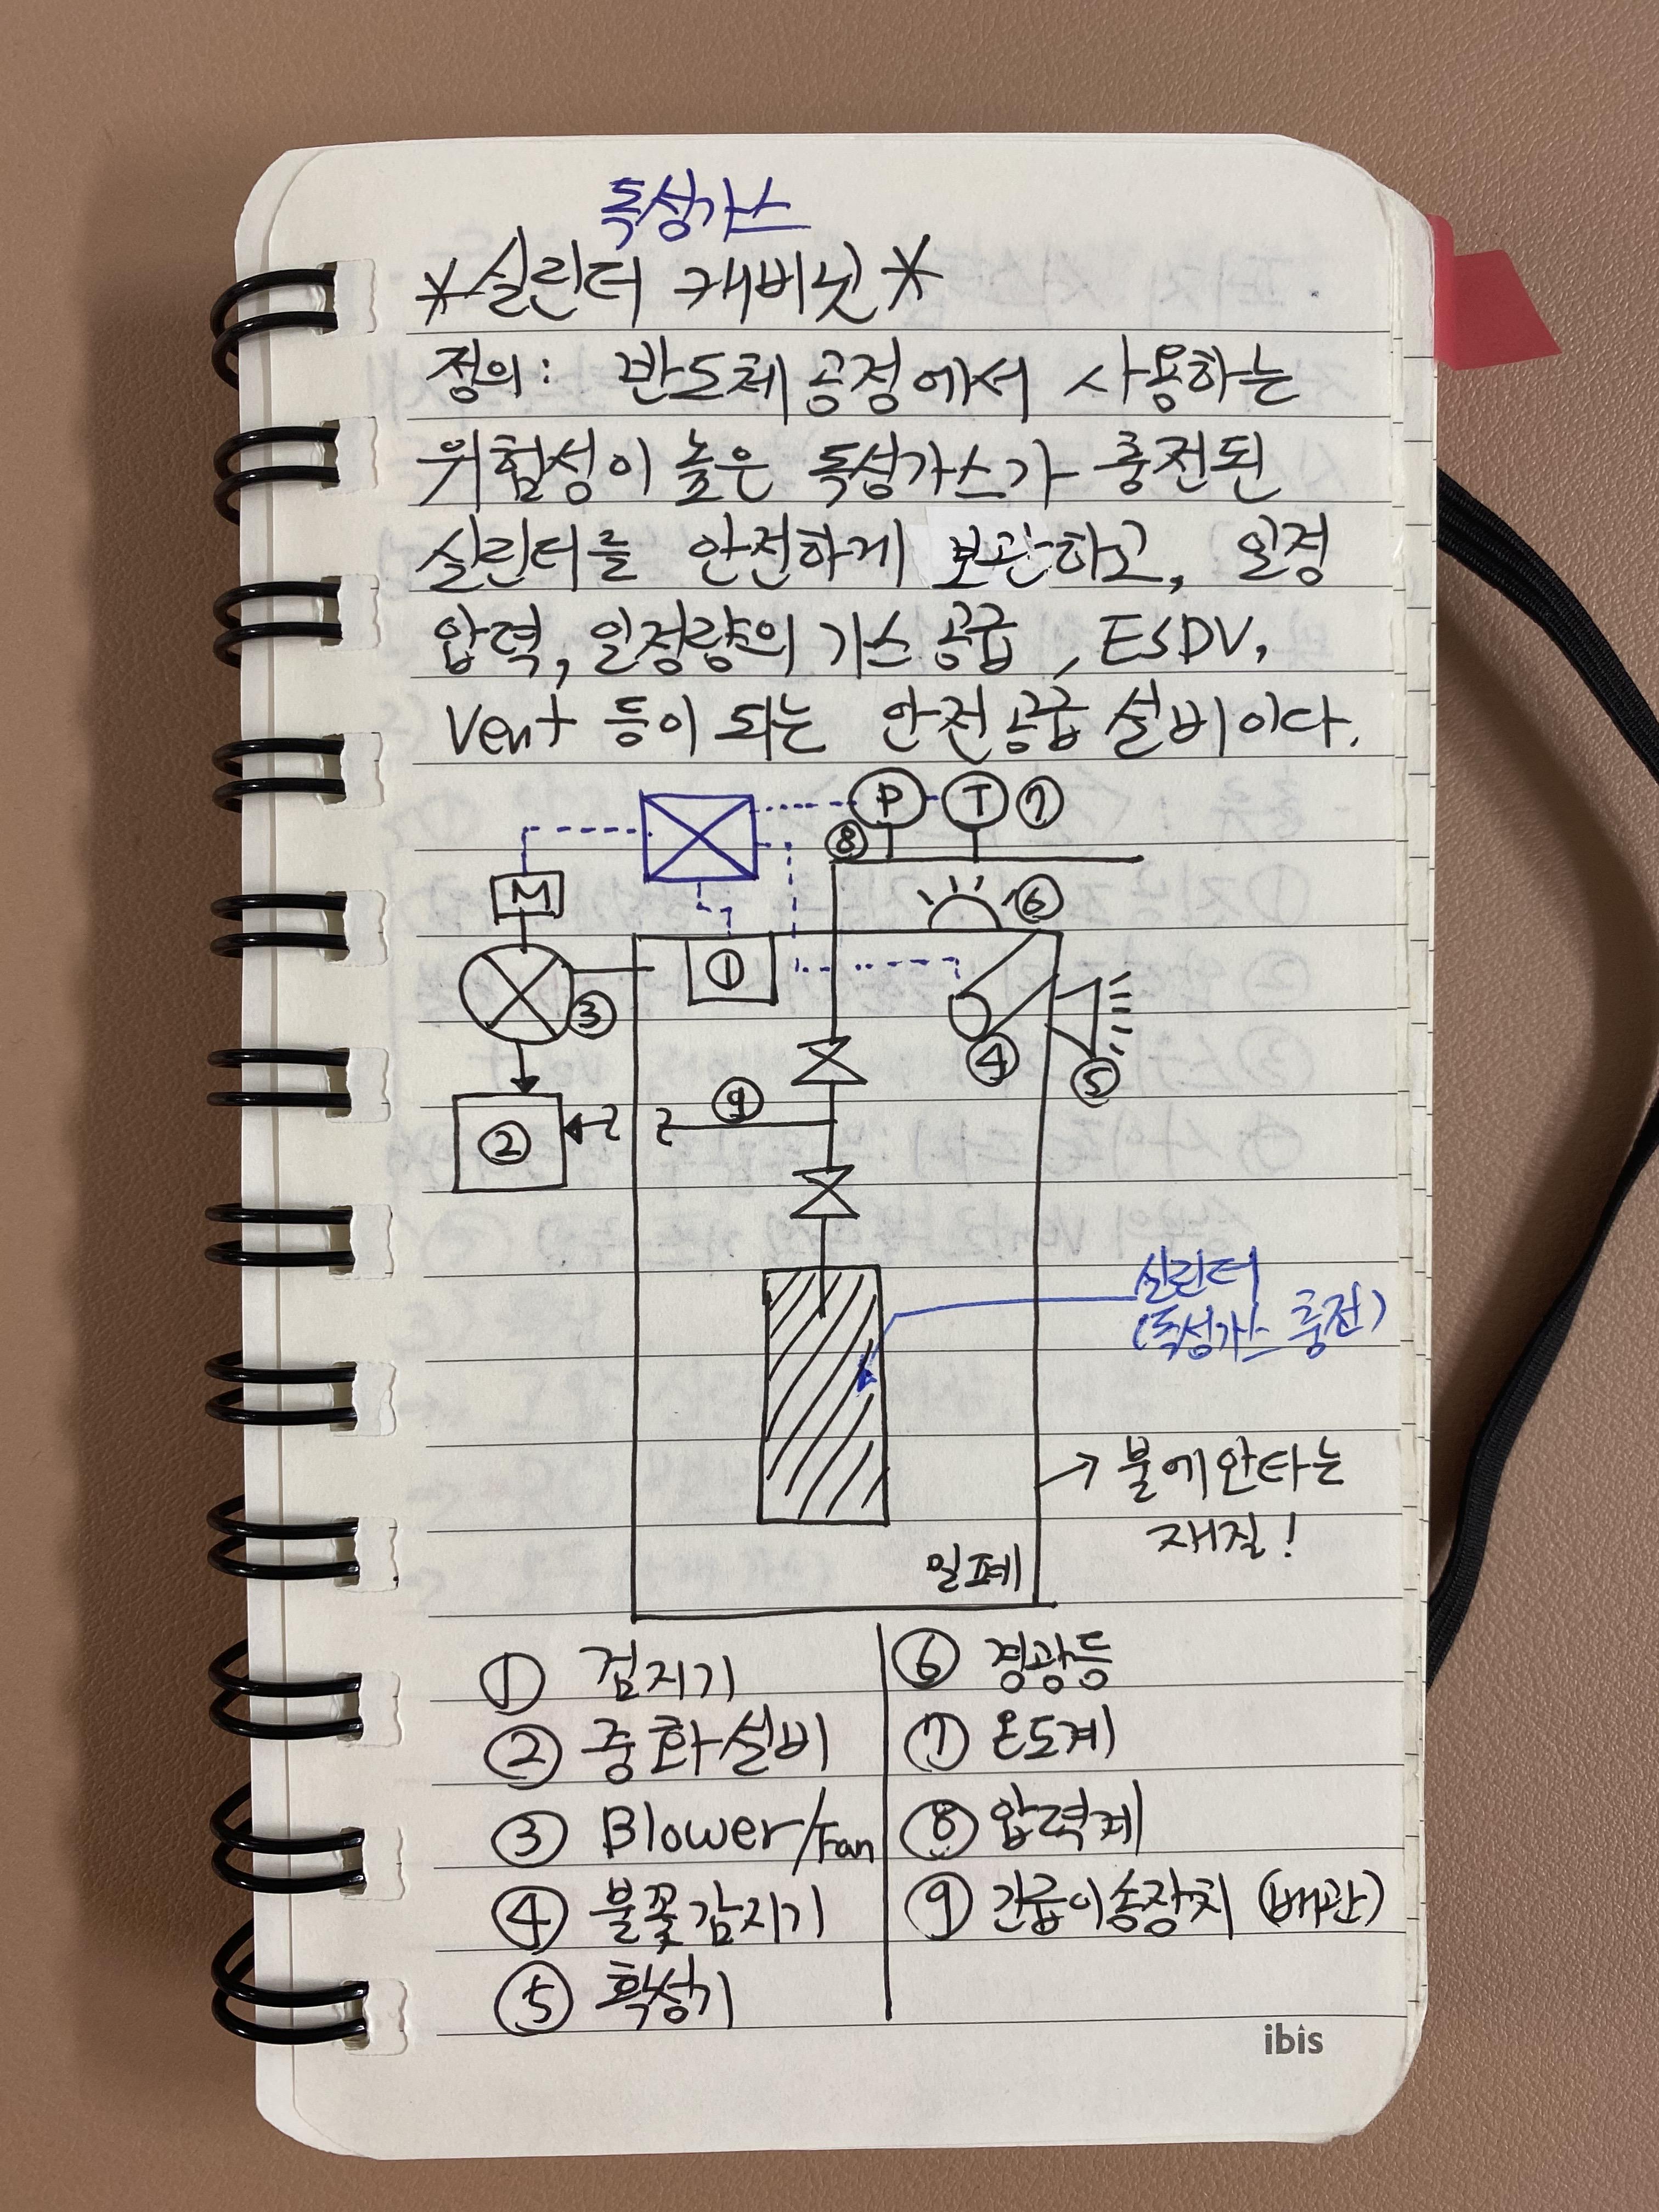 독성가스
*실린더 캐비닛*
정의: 반도체 공정에서 사용하는
위험성이 높은 독성가스가 충전된
실린더를 안전하게 보관하고, 일정
압력, 일정량의 가스 공급, ESDV,
Vent 등이 되는 안전공급 설비이다.
P T ⑦
⑧
M
⑥
①
③
④
⑤
⑨
②
실린더
(독성가스 충전)
→ 불에안타는
재질!
밀폐
① 검지기
② 중화설비
③ Blower/Fan
④ 불꽃감지기
⑤ 확성기
⑥ 경광등
⑦ 온도계
⑧ 압력계
⑨ 긴급이송장치 (배관)
ibis